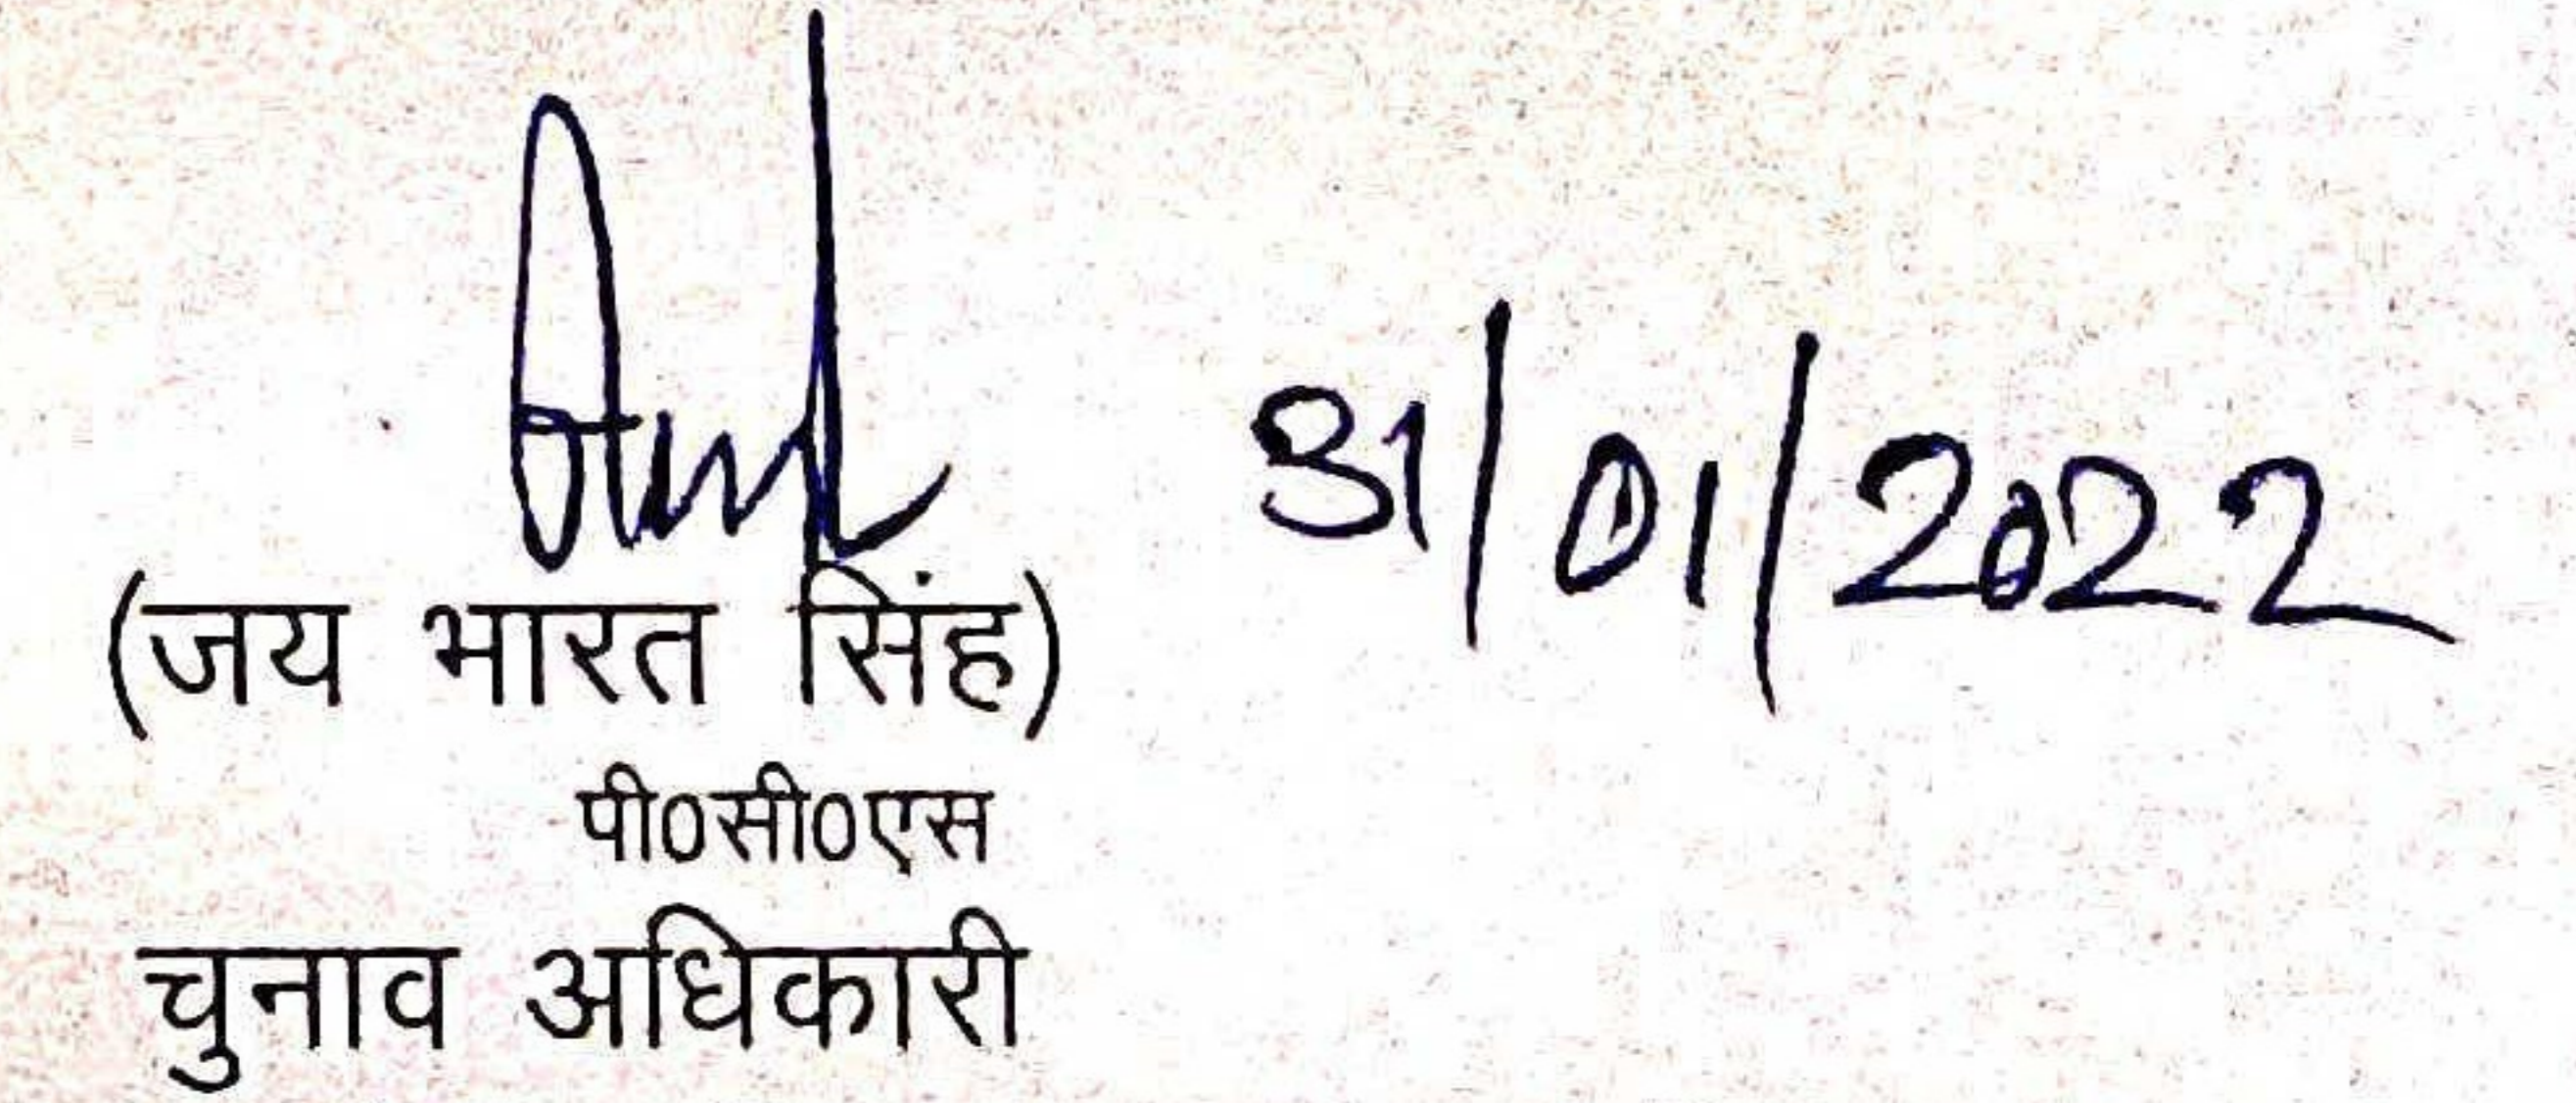 31/01/2022
(जय भारत सिंह)
पी0सी0एस
चुनाव अधिकारी